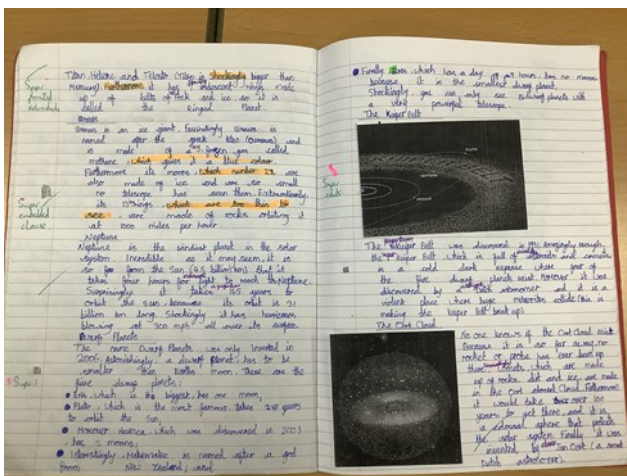 Titan, Helene and Telesto (Titan is shockingly bigger than
Mercury). Furthermore, it has iridescent rings made
up of bits of rock and ice so it is
called the Ringed Planet.
Uranus
Uranus is an ice giant. Fascinatingly Uranus is
named after the greek titan (ouranus) and
is made of frozen gas called
methane, which gives it its blue colour.
Furthermore its moons, which number 27, are
also made of ice and are so small
no telescope has seen them. Extraordinarily,
its 13 rings, which are too thin to
see, are made of rocks orbiting it
at 1000 miles per hour.
Neptune
Neptune is the windiest planet in the solar
system. Incredible as it may seem, it is
so far from the Sun (4.5 billion km) that it
takes four hours for light to reach the Neptune.
Surprisingly it takes 165 years to
orbit the sun, because its orbit is 31
billion km long. Shockingly it has hurricanes
blowing at 300 mph all over its surface.
Dwarf Planets
The name Dwarf Planets was only invented in
2006. Astonishingly, a dwarf planet has to be
smaller than Earths moon. These are the
five dwarf planets:
Eris, which is the biggest, has one moon;
Pluto, which is the most famous, takes 248 years
to orbit the Sun
Moreover Haumea, which was discovered in 2003
has 2 moons;
Interestingly, Makemake is named after a god
from New Zealand; and
Super fronted adverbials
Super embedded clause
Super
Finally, which has a day of 9 hours, has no moons
because it is the smallest dwarf planet.
Shockingly, you can only see dwarf planets with
a very powerful telescope.
The Kuiper Belt
Super edits
PLUTO
NEPTUNE
URANUS
The Kuiper Belt was discovered in 1951. Amazingly enough,
the Kuiper Belt, which is full of asteroids and comets,
is a cold dark expanse where four of
the five dwarf planets exist. Moreover, it was
discovered by astronomer and it is a
violent place where huge meteorites collide (this is
making the Kuiper Belt break up).
The Oort Cloud
No one knows if the Oort Cloud exist
because it is so far away, no
rocket or probe has ever been up
there. Comets, which are made
up of rock, dirt and ice, are made
in the Oort Cloud. Furthermore
it would take over 100
years to get there, and it is
a colossal sphere that protects
the solar system. Finally it was
invented by Jan Oort (a smart
Dutch astronomer).